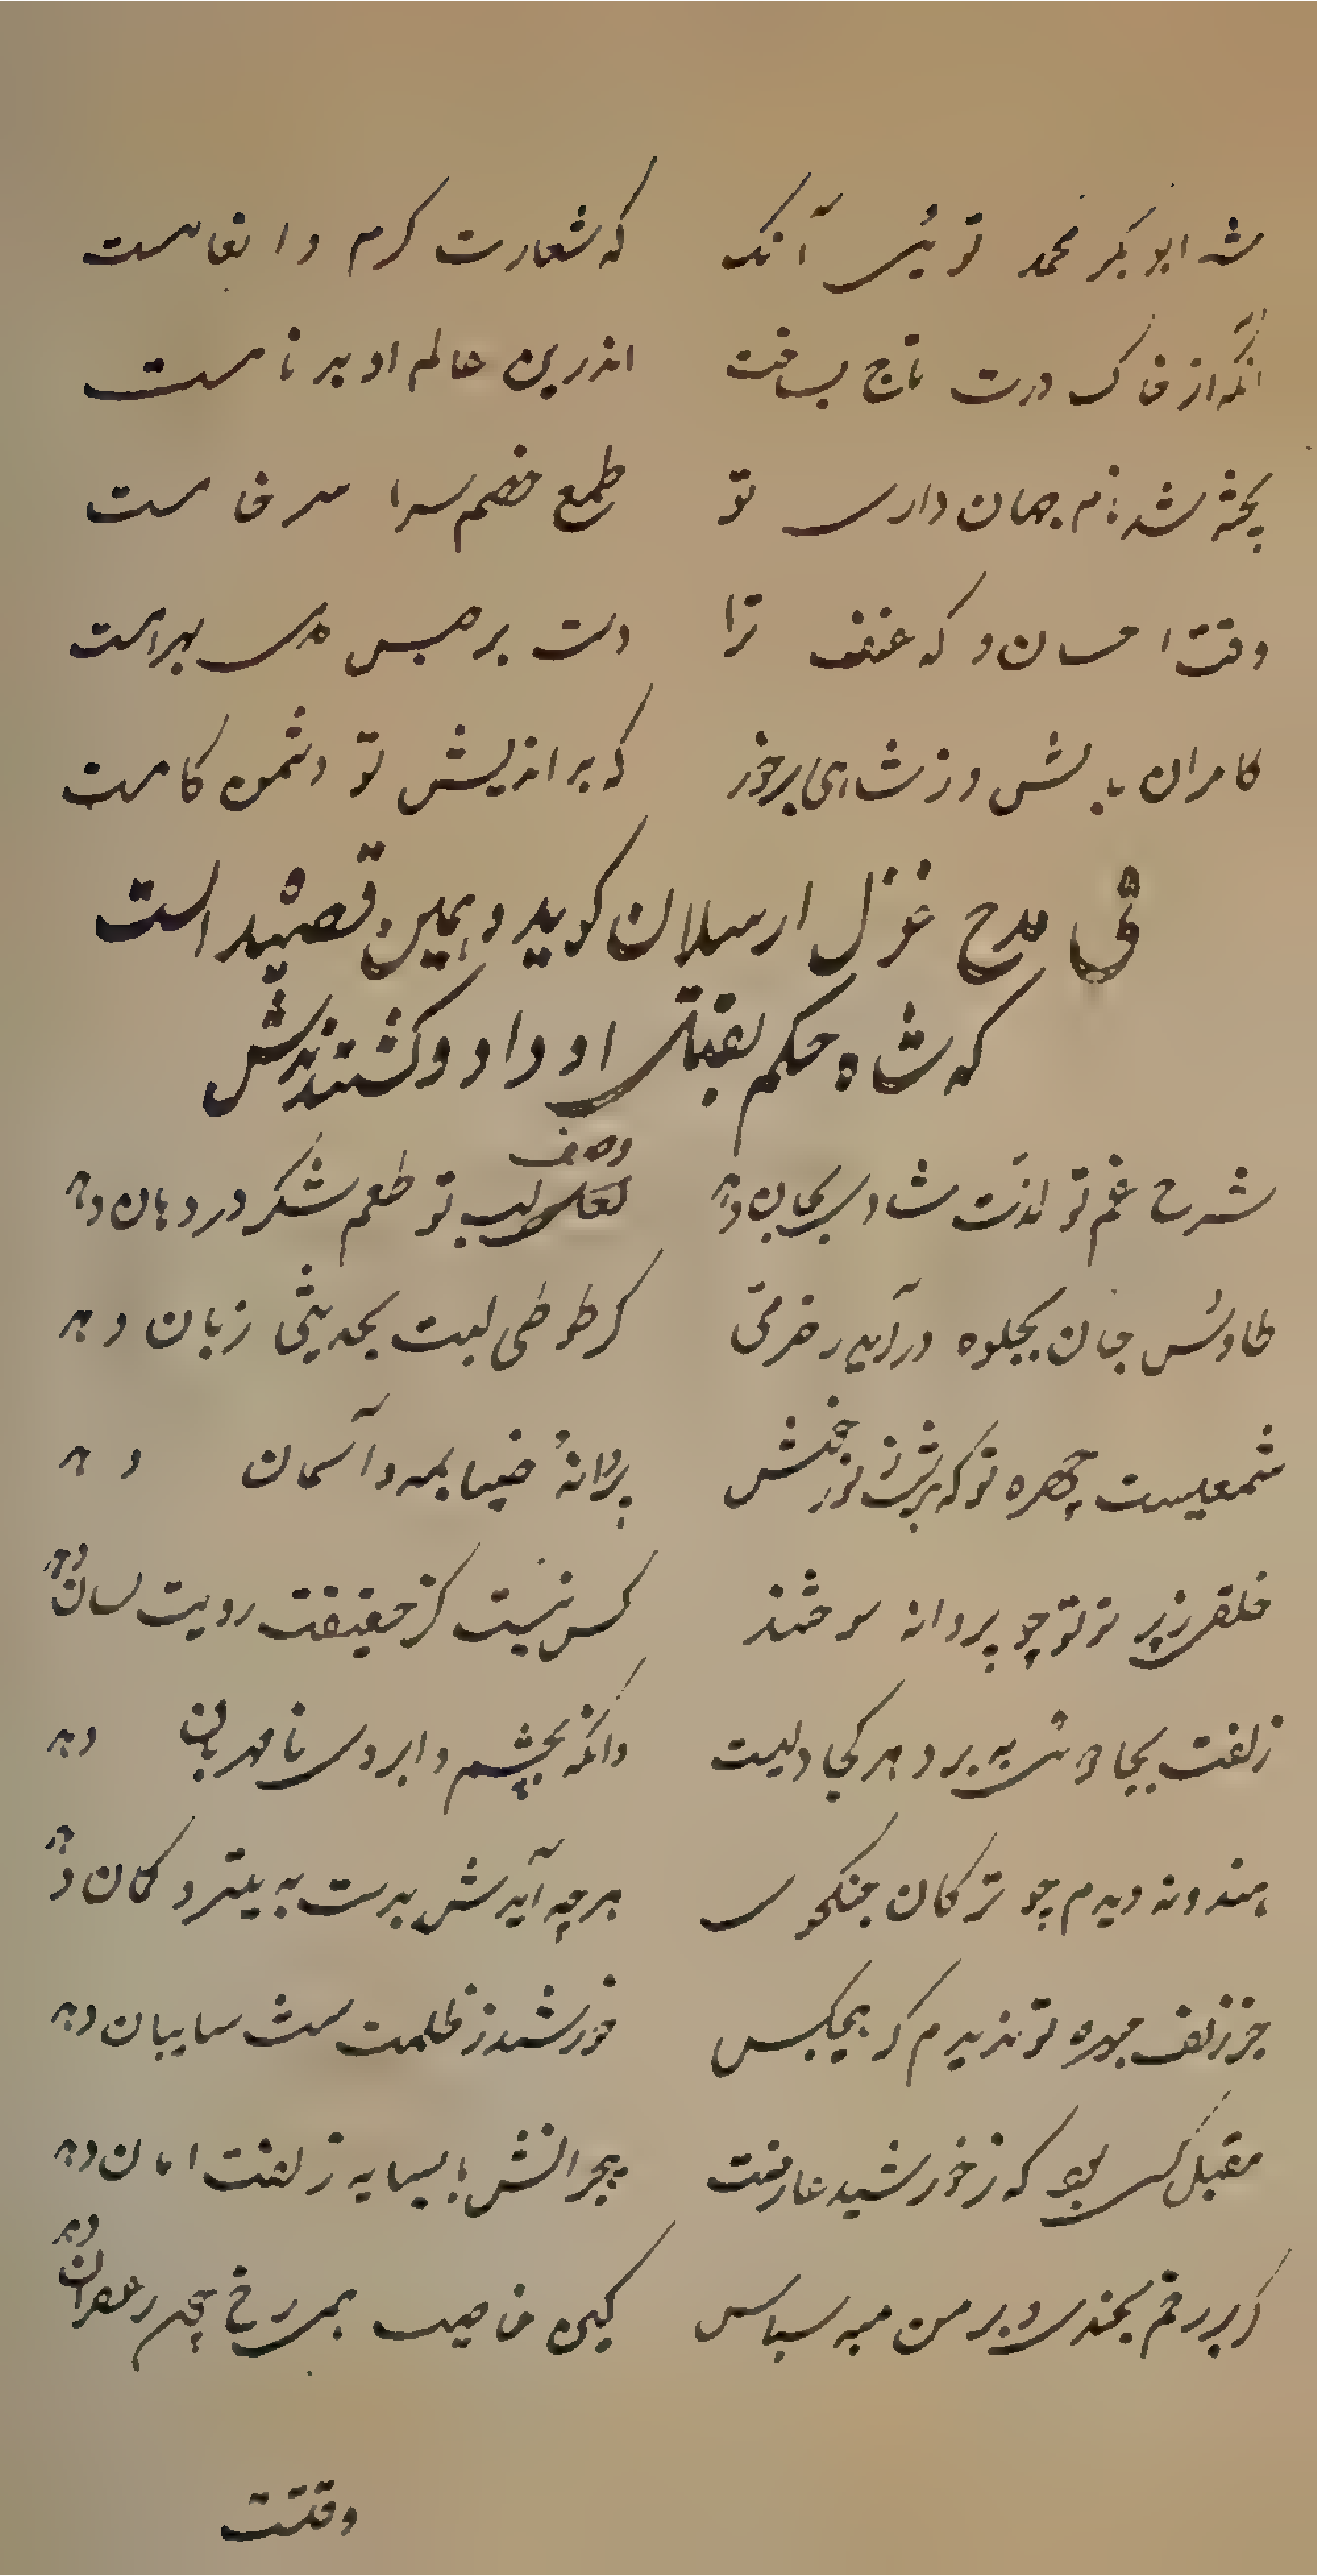 شه ابو بکر محمد توئی آنک که شعارت کرم و انعامست
آنکه از خاک درت تاج بساخت اندرین عالم او برنامست
پخته شد نام جهان داری تو طمع خصم سرا سر خامست
وقت احسان و که عنف ترا دست برجیس بهرامست
کامران باش وز شاهی برخور که بر اندیش تو دشمن کامست
فی مدح غزل ارسلان کوید و همین قصیده است
که شاه حکم بقتل او داد و کشتندش
شرح غم تو لذت شادی بجان دهد وصف لعل لب تو طعم شکر در دهان دهد
طاوس جان بجلوه درآید ز خرمی کر طوطی لبت بحدیثی زبان دهد
شمعیست چهره تو که هر شب ز نور خویش پروانهٔ ضیا بمه و آسمان دهد
خلقی ز پرتو تو چو پروانه سوختند کس نیست کز حقیقت رویت نشان دهد
زلفت بجادوئی ببرد هر کجا دلیست وانکه بچشم و ابروی نامهربان دهد
هندو ندیدم چو ترکان جنکجوی هرچه آیدش بدست به تیر و کمان دهد
جز زلف و چهره تو ندیدم که هیچکس خورشید ز ظلمت شب سایبان دهد
مقبل کسی بود که ز خورشید عارضت هجرانش با سایه زلفت امان دهد
کر بر رخم بخندی و بر من منه سپاس کین خاصیت همی رخ چون زعفران دهد
وقتست